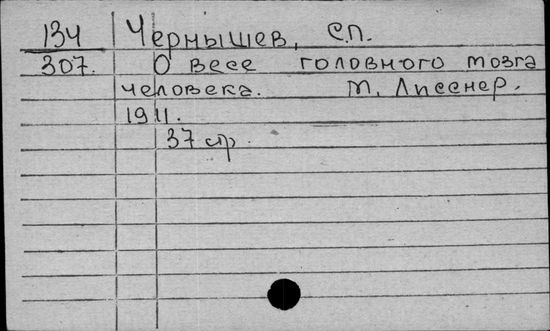 134 Чернышев, С.П.
307. О весе головного мозга
человека. Т. Лисснер.
1911.
37 стр.